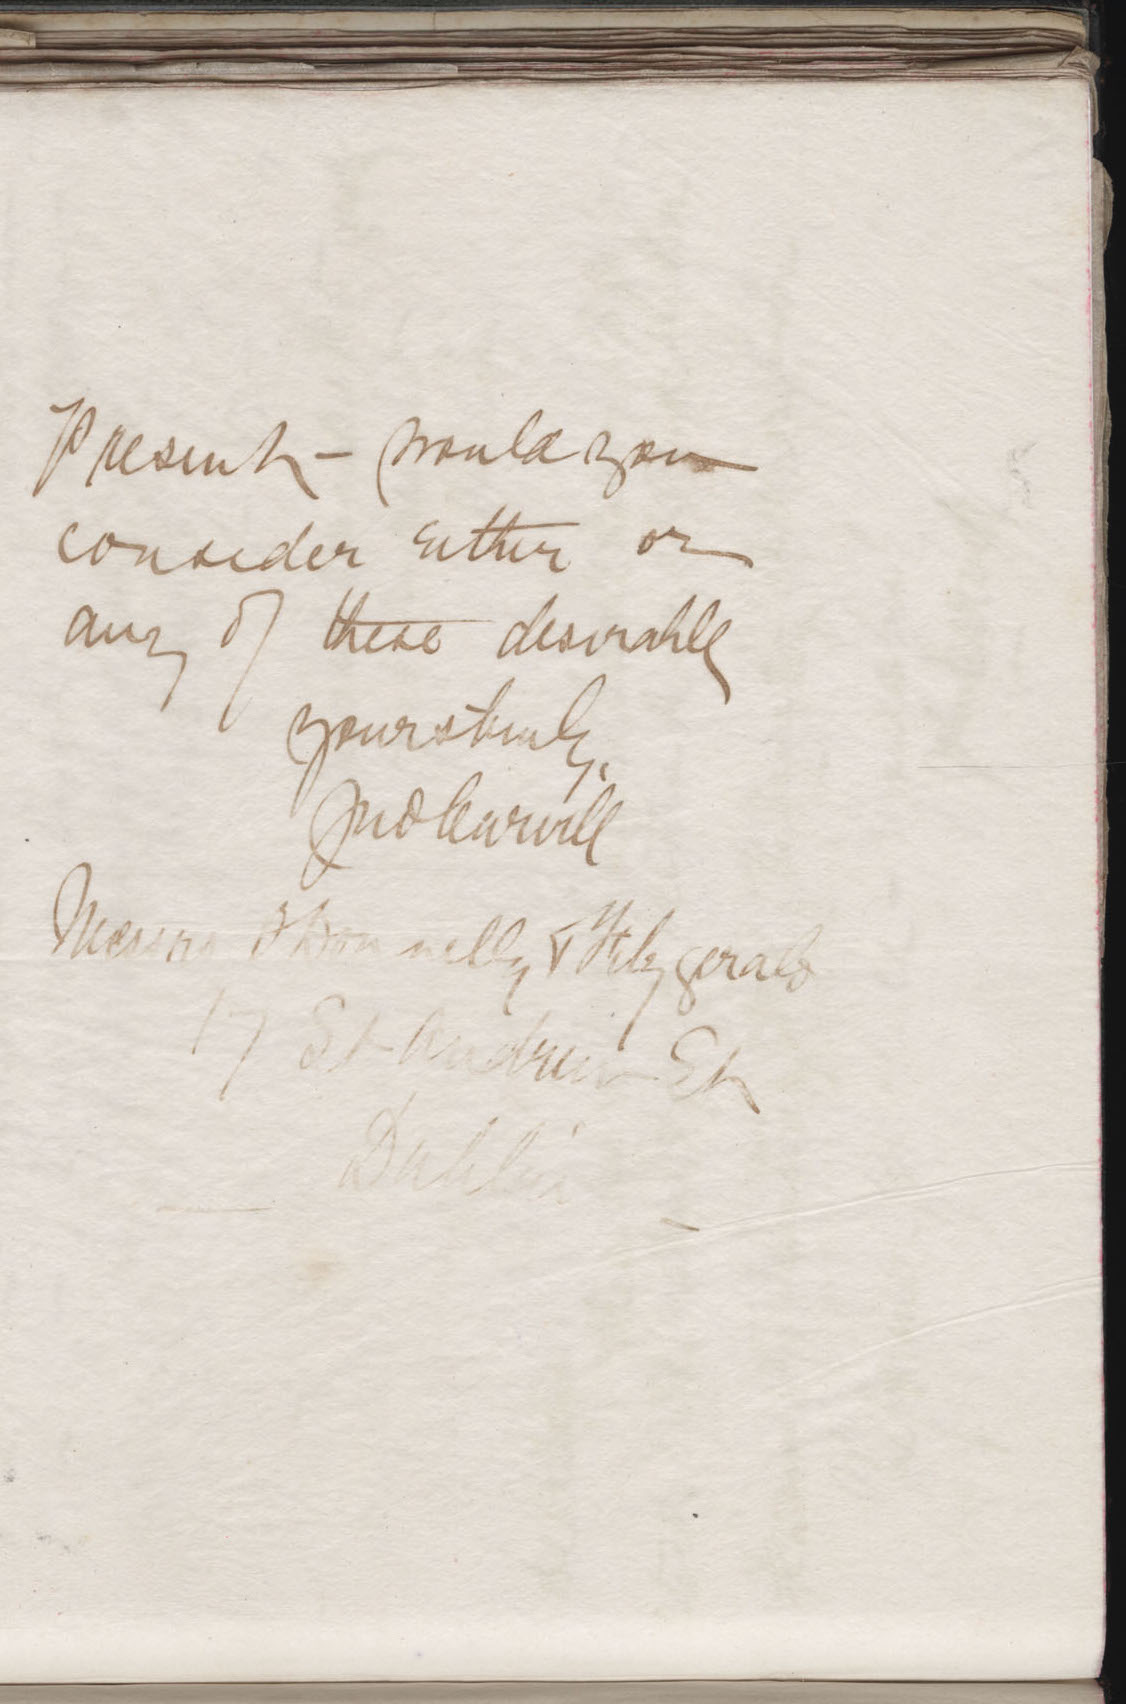 Present – would you
consider either or
any of these desirable
yours truly,
Jno Carvill
Messrs O'Donnelly & Fitzgerald
17 St Andrew St
Dublin